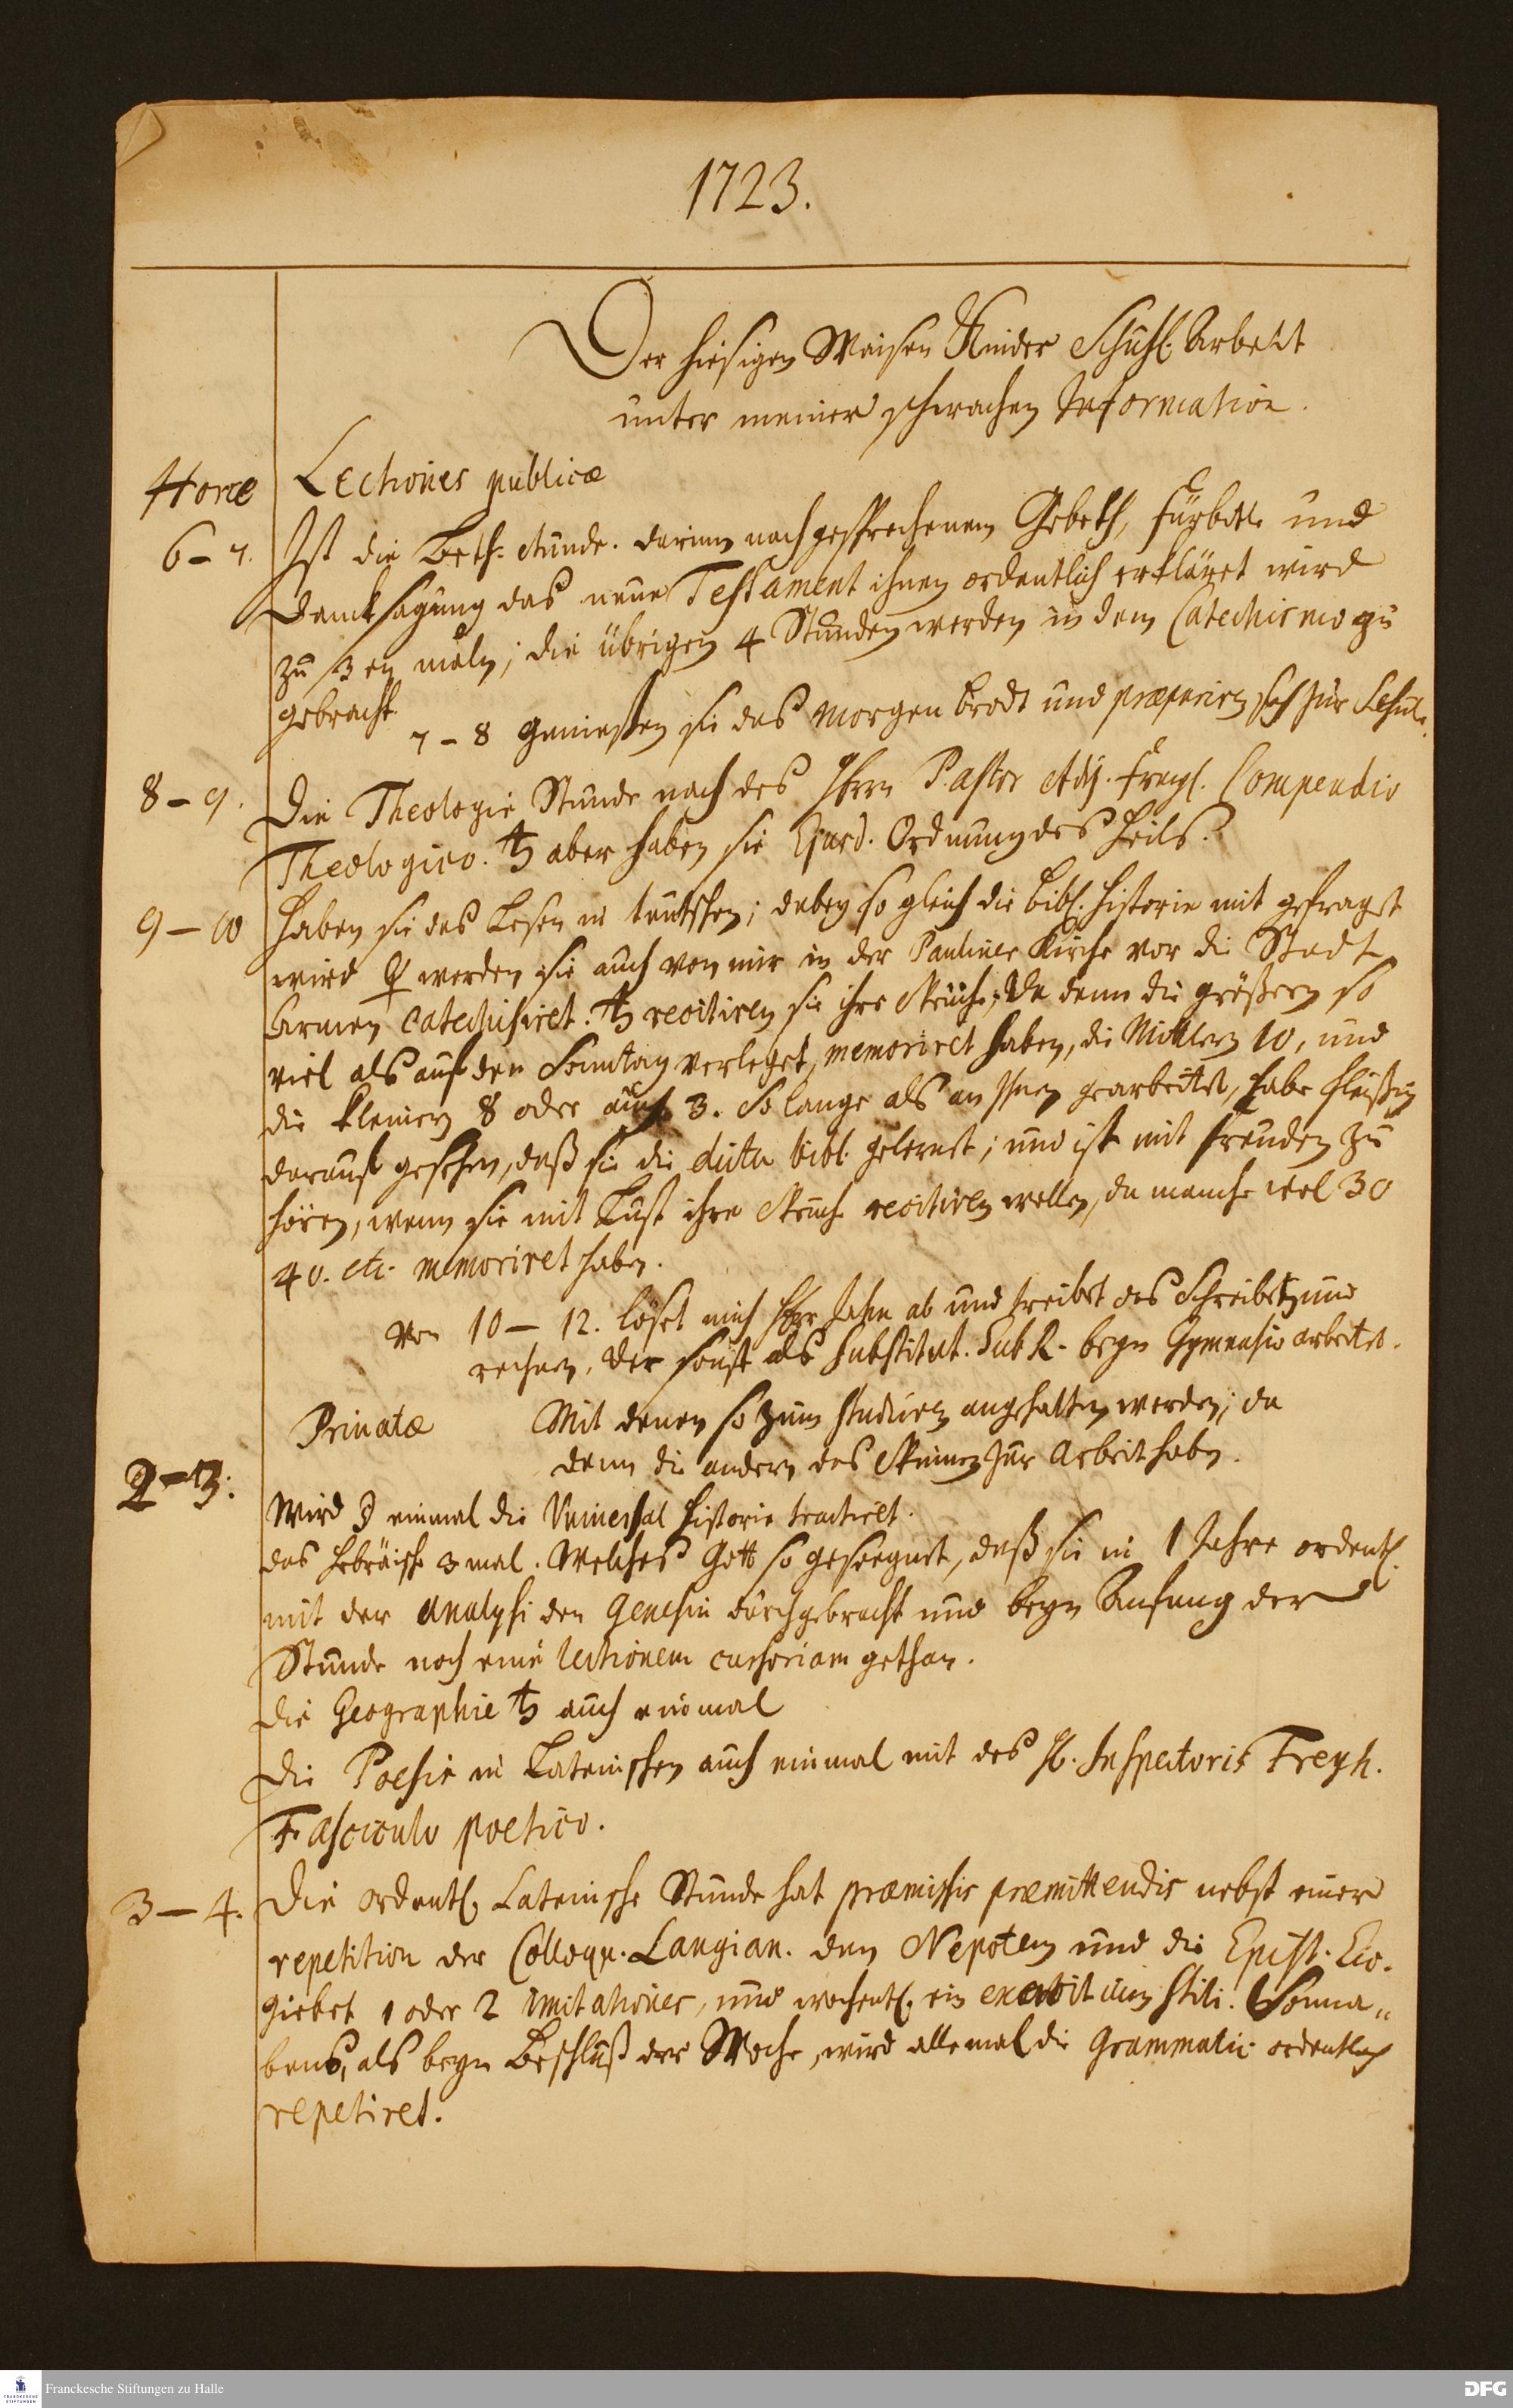 1723.
Der hiesigen Waisen Kinder Schuhl Arbeit
unter meiner schwachen Information.
Horæ Lectiones publicæ
6–7. Ist die Beth-stunde. darinn nach gesprochenem Gebeth, fürbitte und
Dancksagung das neue Testament ihnen ordentlich erkläret wird
zu 3en maln; die übrigen 4 Stunden werden in dem Catechismo zu
gebracht
7–8 Geniessen sie das Morgen brodt und præpariren sich zur Schule.
8–9. Die Theologie Stunde nach des Herrn Pastor Adj. Freyl. Compendio
Theologico. ♄ aber haben sie Ejusd. Ordnung des Heils.
9–10 Haben sie das Lesen in teutschen; dabey so gleich die bibl. Historie mit gefraget
wird ☿ werden sie auch von mir in der Pauliner Kirche vor die Stadt
Armen catechisiret. ♄ recitiren sie ihre Sprüche; da denn die größern so
viel als auf den Sonntag verleget, memoriret haben, die Mittlern 10, und
die kleinern 8 oder auch 3. So lange als an Ihnen gearbeitet, habe fleißig
darauf gesehen, daß sie die dicta bibl. gelernet; und ist mit freuden zu
hören, wenn sie mit Lust ihre Sprüche recitiren wollen, da manche wol 30
40. etc. memoriret haben.
Von 10–12. löset mich Herr Jahn ab und treibet das Schreiben und
rechnen, der sonst als Substitut. Sub R. beym Gymnasio arbeitet.
Privatæ Mit denen so zum studiren angehalten werden; da
denn die andern das Spinnen zur Arbeit haben.
2–3. Wird ☽ einmal die Universal Historie tractiret.
das Hebräische 3 mal. Welches Gott so gesegnet, daß sie in 1 Jahre ordentl.
mit der Analysi den Genesin durchgebracht und beym Anfang der
Stunde noch eine lectionem cursoriam gethan.
Die Geographie ♄ auch einmal
Die Poesie in Lateinischen auch einmal mit des H. Inspectoris Freyh.
Fasciculo poetico.
3–4. Die ordentl. Lateinische Stunde hat præmissis præmittendis nebst einer
repetition der Colloqu. Langian. den Nepotem und die Epist. Cic.
giebet 1 oder 2 imitationes, und wochentl. ein exercitium stili. Sonna„
bens, als beym Beschluß der Woche, wird allemal die Grammatic ordentlich
repetiret.
Franckesche Stiftungen zu Halle
DFG